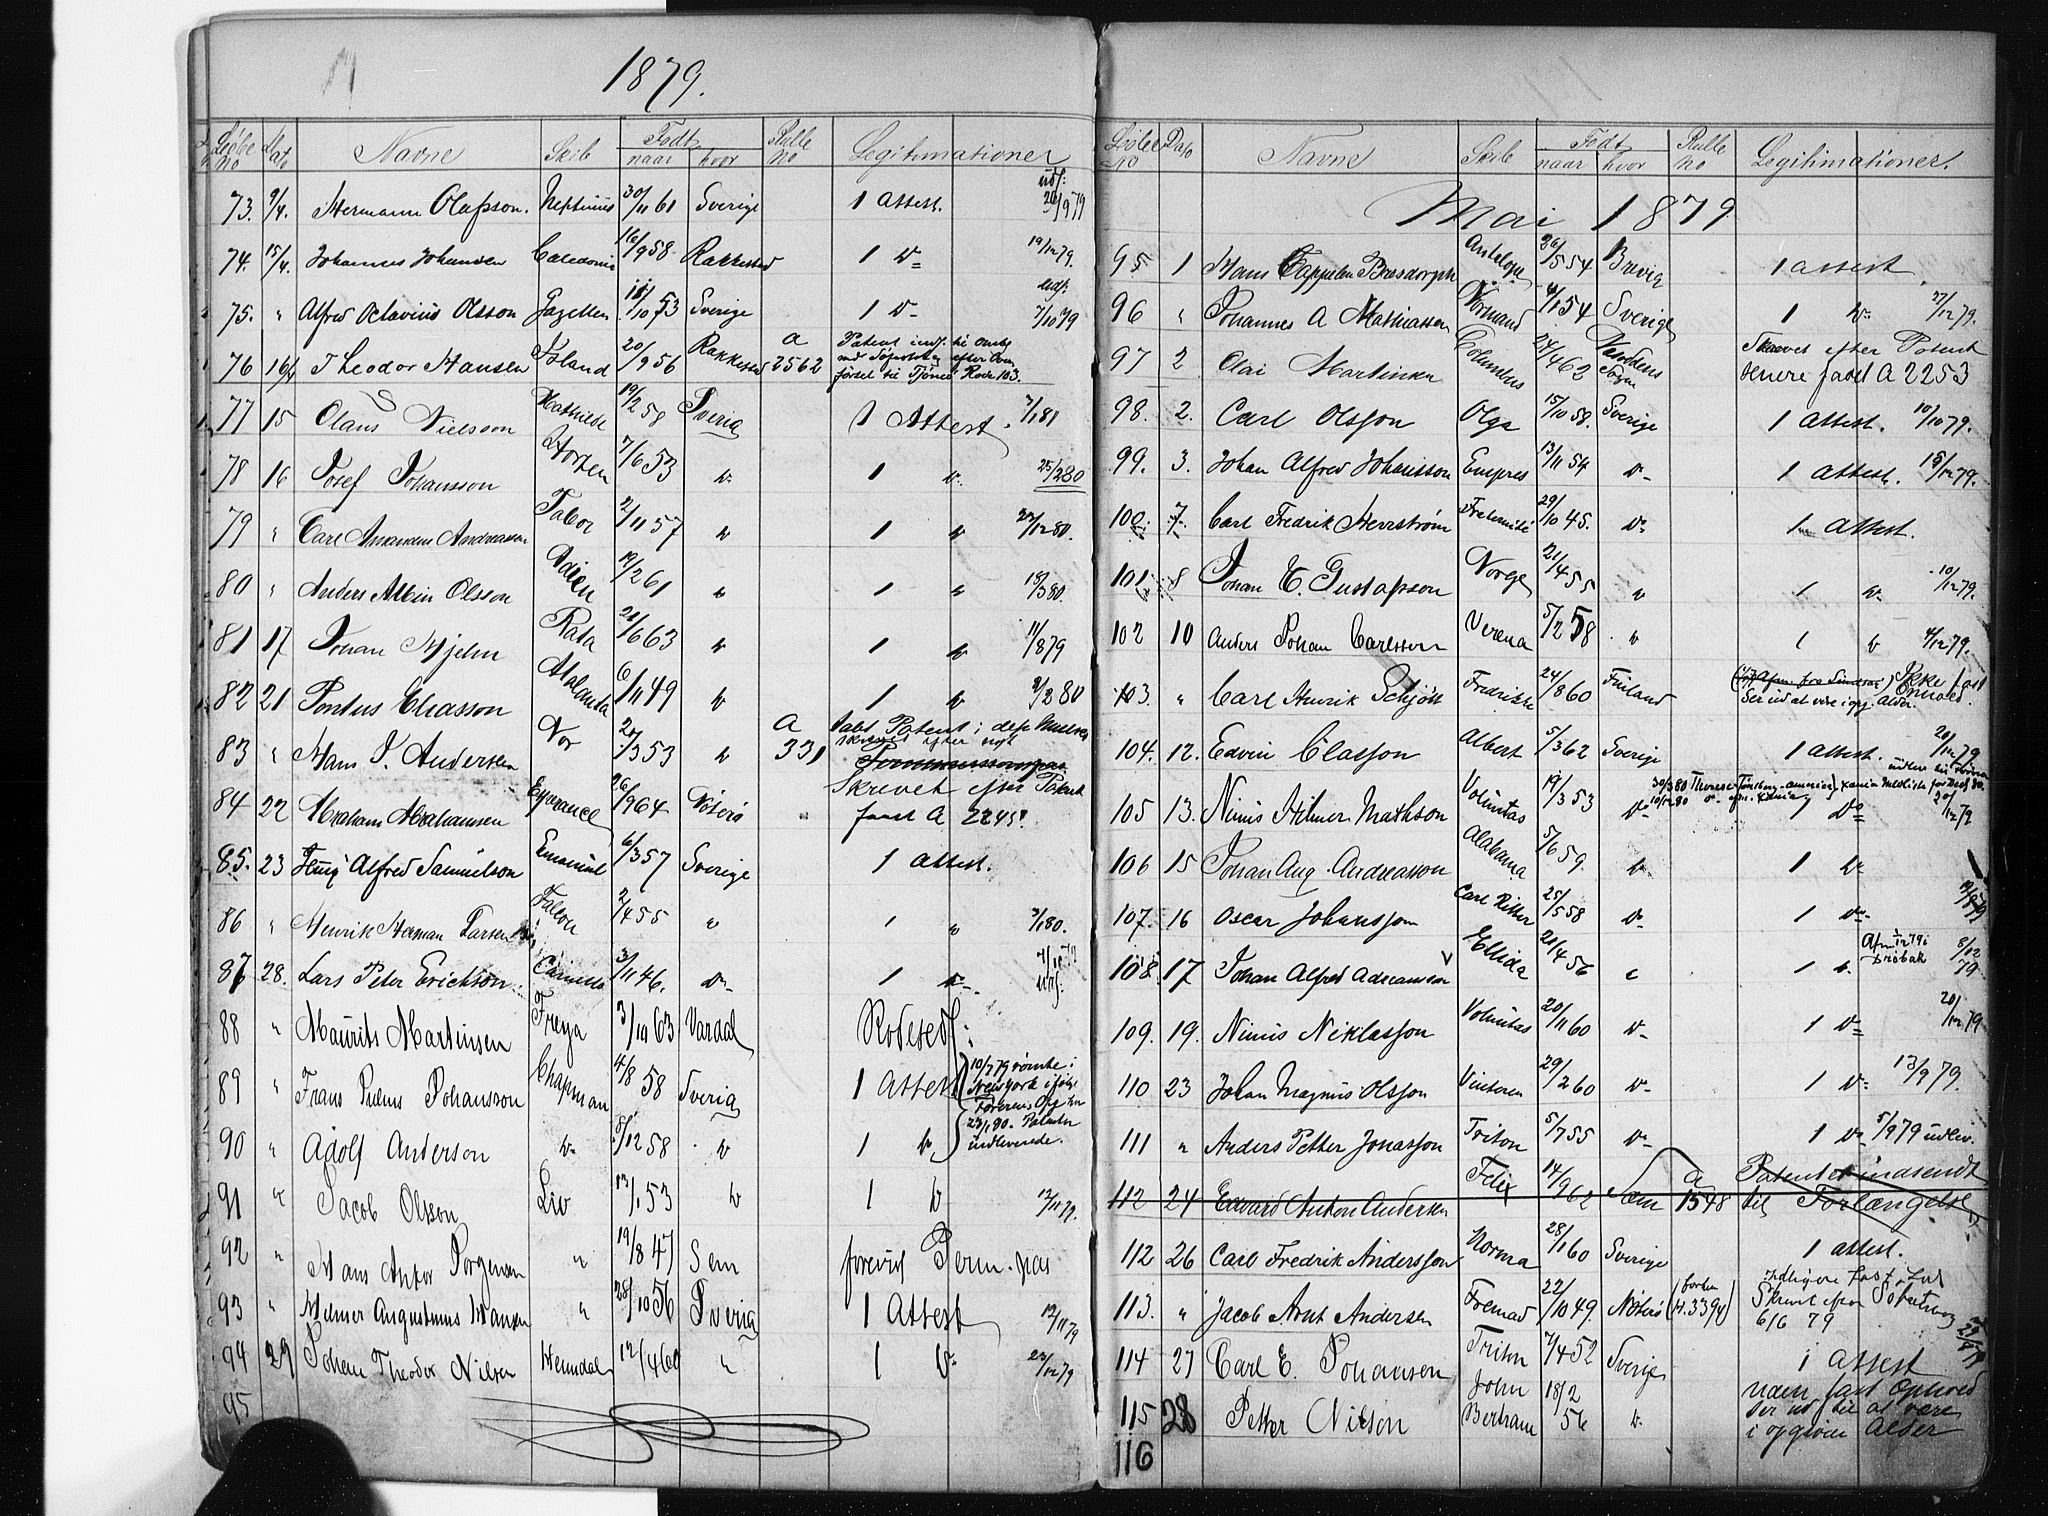 1879.
Løbe No Dato Navne Skib Født naar hvor Rulle No Legitimationer
73. 9/4. Hermann Olafsson. Neptunus 30/11 61 Sverige 1 Attest. udf: /9 79
74. 15/4. Johannes Johansen Caledonia 16/9 58 Rakkestad 1 do 19/12 79.
75. " Alfred Octavius Olsson Gazellen /10 53 Sverige 1 do udf: 7/10 79
76 16/4 Theodor Hansen Island 20/9 56 Rakkestad A 2562 Patent
til Tjømø Rode 103.
77 15 Olaus Nielsson Mathilde 19/2 58 Sverig 1 Attest 3/1 81
78 16 Josef Johansson Horten 7/6 53 do 1 do 25/2 80
79 " Carl Amandus Andreassen Tabor 2/11 57 do 1 do /12 80.
80 " Anders Albin Olsson Odien 19/2 61 do 1 do 18/3 80.
81 17 Johan Hjelm Rata 21/6 63 do 1 do 11/8 79
82 21 Pontus Eliasson Atalanta 6/11 49 do 1 do 2/2 80
83 " Hans J. Andersen Nor 2/3 53 do A 331 tabt Patent i
skrevet efter nyt
84 22 Abraham Abrahamsen Esperance 26/9 64 Nøterø Skrevet efter Patent
faaet A 2245
85. 23 Alfred Samuelson Emanuel 6/3 57 Sverige 1 Attest.
86 " Henrik Herman Larsen Falcon 2/4 55 " 1 " 3/1 80.
87 28. Lars Peter Erickson. 3/11 46. do 1 do 7/10 79 udf:
88 " Maurits Martinsen Freya 3/10 63 Vardal Rodesedl:
89 " Frans Johansson Chapman 4/8 58 Sverig 1 Attest 10/7 79 rømte i
New York
23/1 80. Patenter
indleverede.
90 " Adolf Anderson do 8/12 58 do 1 do
91 " Jacob Olsson Liv 13/1 53 do 1 do 12/11 79.
92 " Hans Anton Borgman " 19/8 47 Sem forevist Perm. pas
93 " Helmer Augustinus Hansen " 28/10 56 Sverig 1 Attest 12/11 79
94 29 Johan Theodor Nilsen Heimdal 12/4 60 " 1 do 23/12 79
95
Løbe No Dato Navne Skib Født naar hvor Rulle No Legitimationer.
Mai 1879
95 1 Hans Cappelen Antelope 26/5 54 Brevig 1 Attest
96 " Johannes A Mathiassen Normand /1 54 Sverige 1 do 27/12 79.
97 2 Olai Martinsen Columbus 24/4 62 Skrevet efter Patent
senere faaet A 2253
98. 2. Carl Olsson Olga 15/10 58. Sverige 1 Attest. 10/10 79.
99. 3. Johan Alfred Johansson Empres 13/11 54 do 1 Attest. /12 79.
100. 7. Carl Fredrik Herrstrøm Fraternité 29/10 45. do 1 Attest.
101 8 Johan E. Gustafsson Norge 21/4 55 do 1 do 10/12 79.
102 10 Anders Johan Carlsson Verena 5/2 58 do 1 do 4/12 79.
103. " Carl Henrik Schjøtt Fredrikke 24/8 60 Finland Ikke fast
Ser ud at være i opg. Alder. Ophold.
104. 12. Edvin Classon Albert 5/3 62 Sverige 1 Attest. 20/12 79
105 13. Nimis Hilmer Mathson Voluntas 19/3 53 do 1 do 20/12 79
106 15 Johan Aug. Andreasson Alabama 5/6 59. do 1 do
107. 16 Oscar Johansson Carl Ritter 25/5 58 do 1 do 19/8 79
108. 17 Johan Alfred Adreansson Ellida 21/4 56 " 1 do Afm 1/12 79 i Drøbak 8/12 79
109. 19. Nimis Niklasson Voluntas 20/11 60 do 1 do 20/12 79
110 23 Johan Magnus Olsson Vinteren 29/2 60 do 1 do 13/9 79.
111 " Anders Petter Jonasson Triton 5/7 55 do 1 do 5/9 79 udlev.
112 24 Edvard Anton Andersen Felix 14/9 62 Sem A 1548 Patentet indsendt
til Forlængelse
112 26 Carl Fredrik Andersson Norma 28/1 60 Sverige 1 Attest.
113. " Jacob Arnt Andersen Fremad 22/10 49. Nøterø
Skrevet efter
6/6 79
114 27 Carl E. Johanson Triton 7/4 52 Sverige 1 Attest
115 28 Petter Nilson John Bertram 18/2 56 do uden fast Ophold
ser ud til at være
i opgiven Alder
116